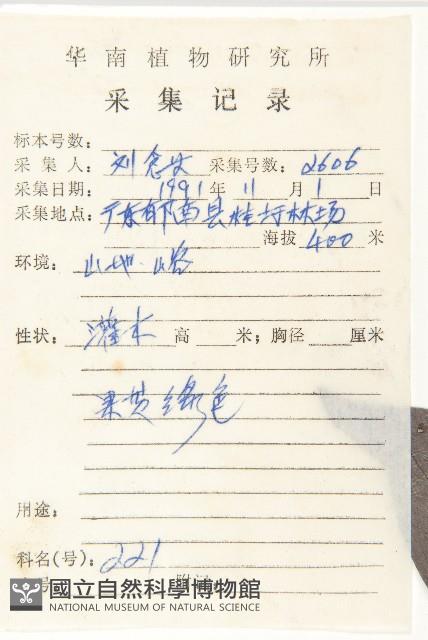 华南植物研究所
采集记录
标本号数：
采集人：刘念 采集号数：2606
采集日期：1991年11月1日
采集地点：广东郁南县桂圩林场
海拔 400 米
环境：山地·山谷
性状：灌木 高 米；胸径 厘米
果黄绿色
用途：
科名(号)：221
號
國立自然科學博物館
NATIONAL MUSEUM OF NATURAL SCIENCE